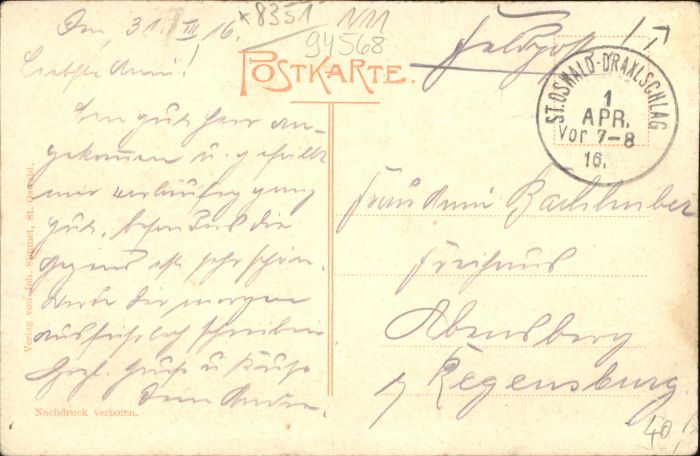 Den, 31. III 16.
*8351 NM
94568
Feldpost
Liebste Anni!
POSTKARTE.
ST. OSWALD-DRAXLSCHLAG
1
APR.
Vor 7-8
16.
Bin gut hier an-
gekommen u. gefällt
mir vorläufig ganz
gut, besonders die
Gegend ist sehr schön.
Werde dir morgen
ausführlich schreiben
Herzl. Gruß u. Kuß
Dein
Frau Anni
Freihaus
Abensberg
b/ Regensburg
Verlag von Joh. St. Oswald.
Nachdruck verboten.
40,